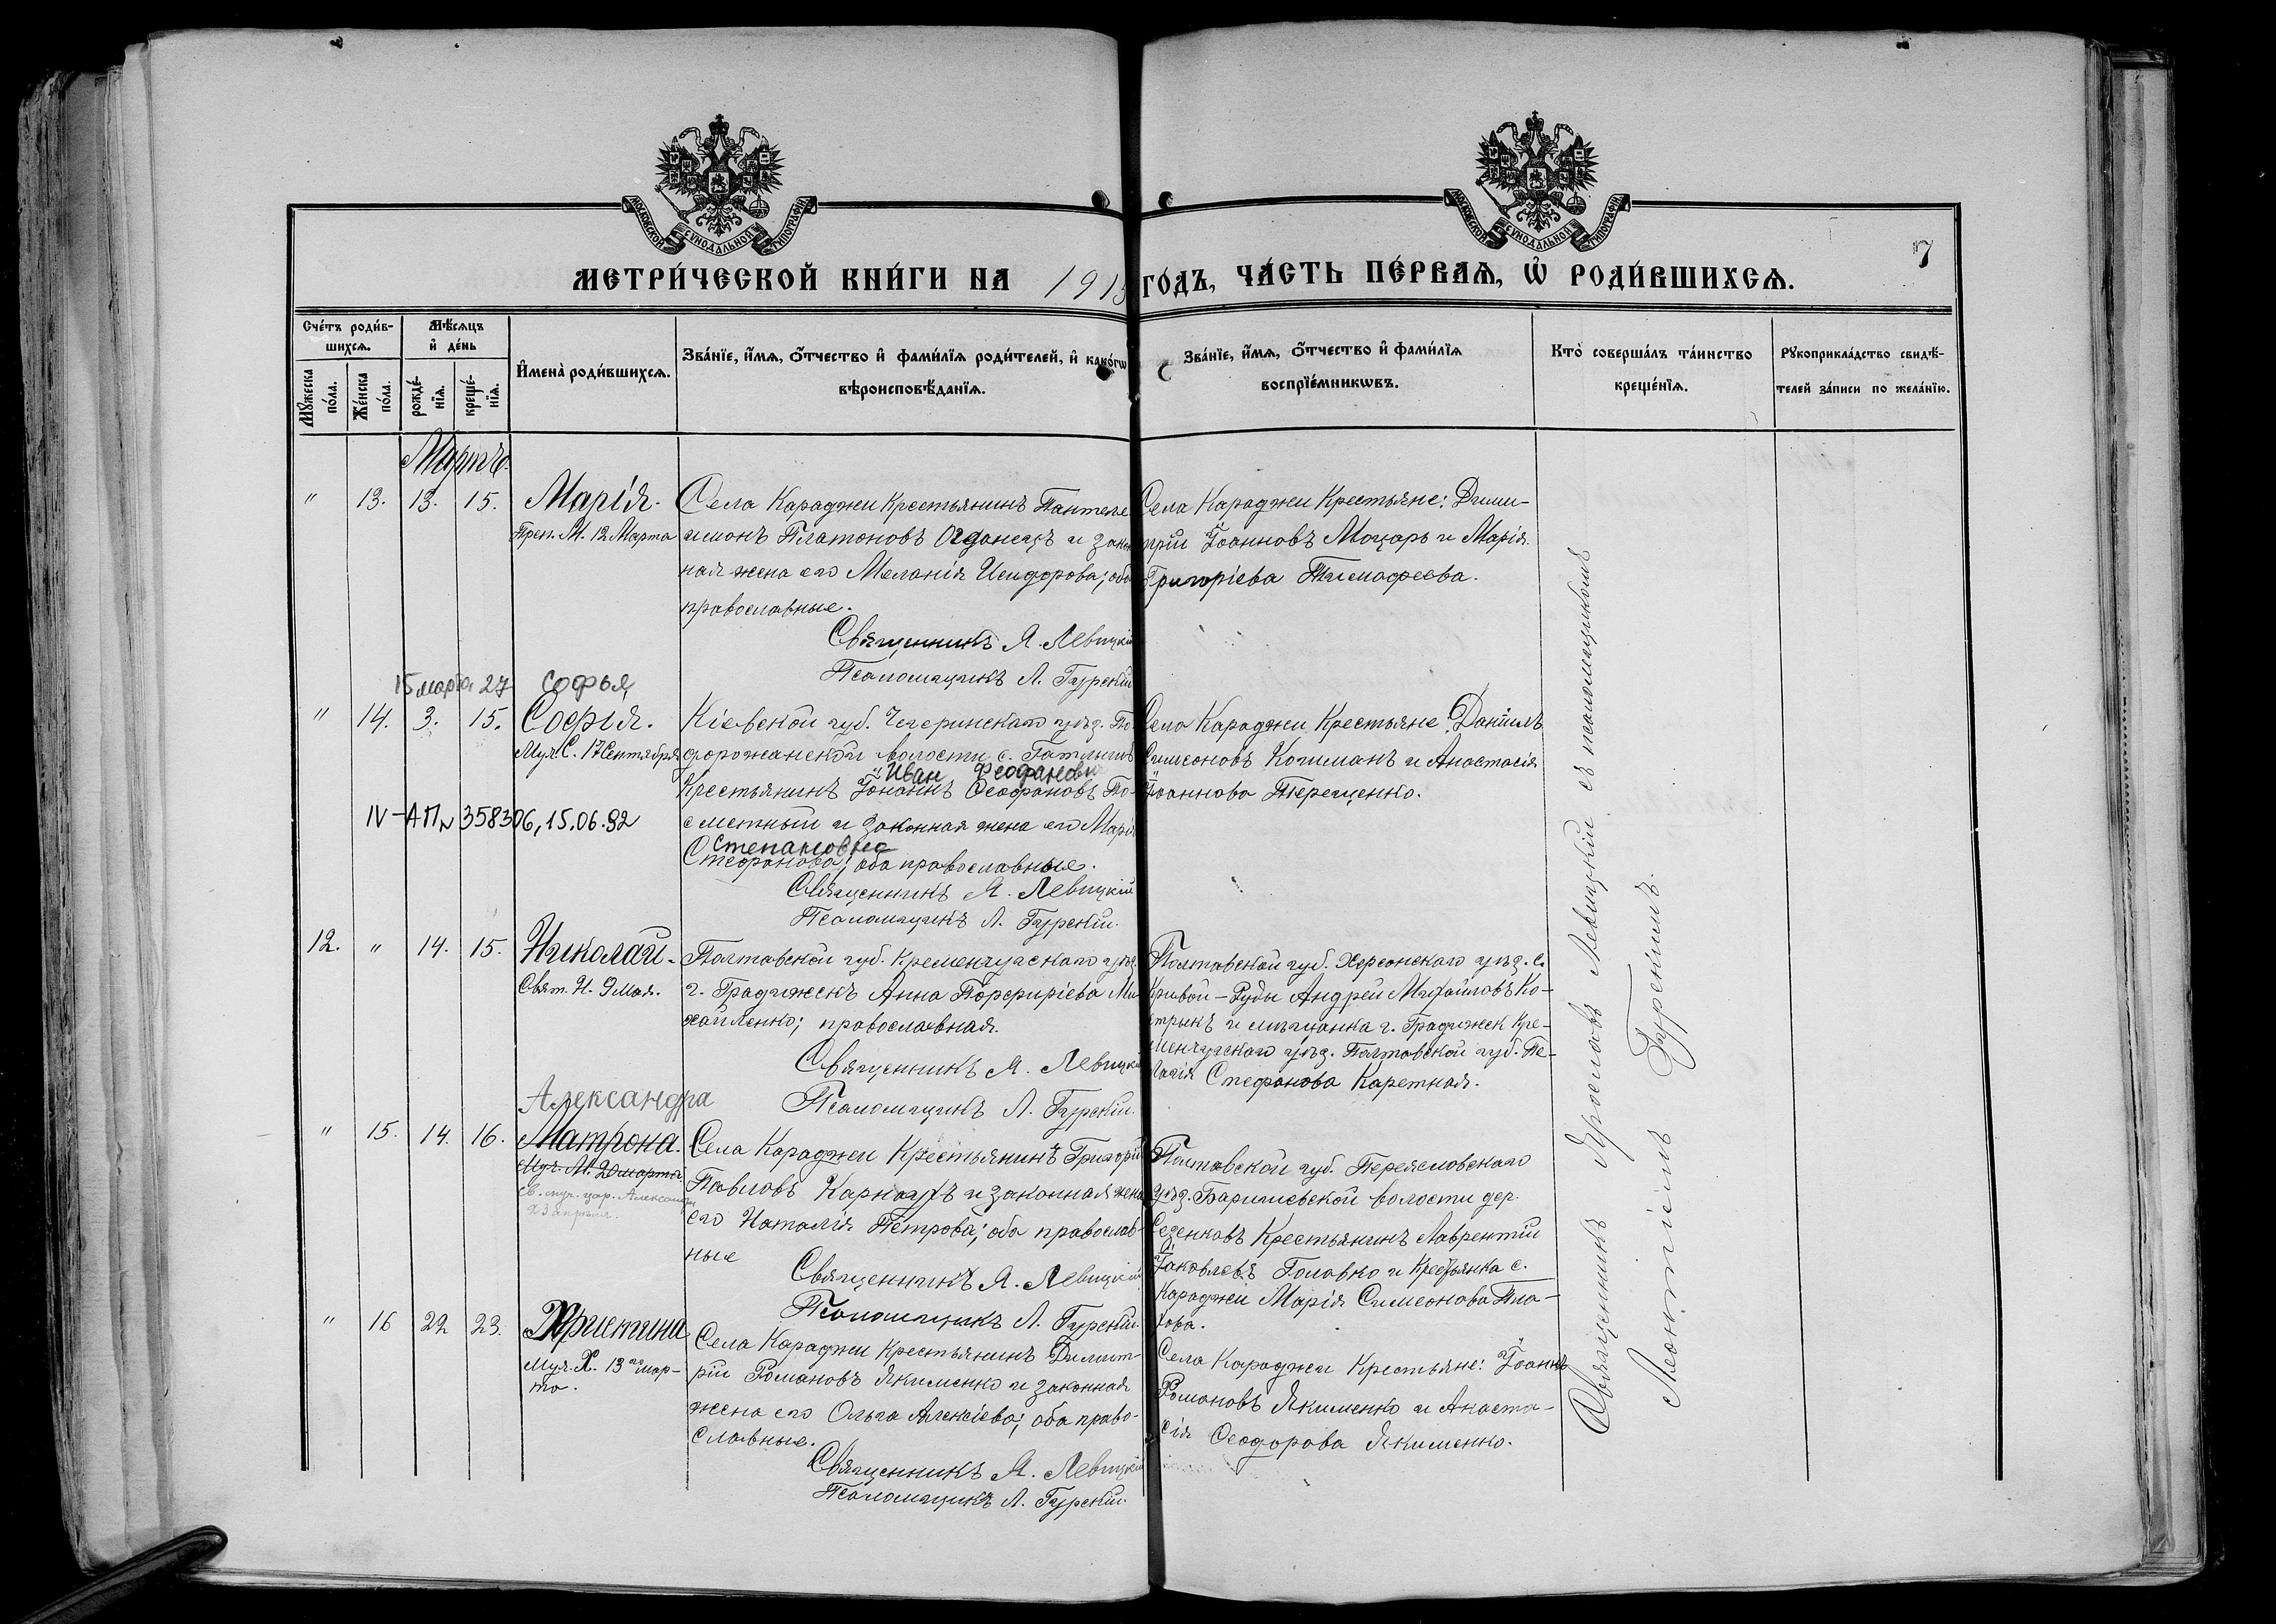 МОСКОВСКОЙ СѴНОДАЛЬНОЙ ТИПОГРАФІИ
МОСКОВСКОЙ СѴНОДАЛЬНОЙ ТИПОГРАФІИ
7
МЕТРИ́ЧЕСКОЙ КНИ́ГИ НА 1915 ГО́ДЪ, ЧА́СТЬ ПЕ́РВАѦ, Ѡ҆ РОДИ́ВШИХСѦ.
Сче́тъ роди́в-
шихсѧ.
Мѣ́сѧцъ
и҆ де́нь
Мꙋ́жеска по́ла.
Же́нска по́ла.
рожде́-
нїѧ.
креще́-
нїѧ.
И҆мена̀ роди́вшихсѧ.
Зва́нїе, и҆́мѧ, ѻ҆́тчество и҆ фами́лїѧ роди́телей, и҆ како́гѡ
вѣроисповѣ́данїѧ.
Зва́нїе, и҆́мѧ, ѻ҆́тчество и҆ фами́лїѧ
воспрїе́мникѡвъ.
Кто̀ соверша́лъ та́инство
креще́нїѧ.
Рꙋкоприкла́дство свидѣ́-
телей за́писи по жела́нїю.
Мартъ.
" 13. 13. 15. Марія.
Преп. М. 12 Марта
Села Караджи Крестьянинъ Пантеле
имонъ Платоновъ и закон
ная жена его Меланія Исидорова; оба
православные.
Священникъ Я. Левицкій
Псаломщикъ Л. Гурскій
Села Караджи Крестьяне: Дими-
трій Іоанновъ Моцарь и Марія
Григоріева Тимофеева.
15 марта 27 Софья
" 14. 3. 15. Софія.
Муч. С. 17 Сентября
IV-АП № 358306, 15.06.82
Кіевской губ. Чегеринскаго уѣзд. По
дорожанской волости с.
Иван Феофанови
Крестьянинъ Іоаннъ Ѳеофановъ По-
сметный и законная жена его Марія
Степановна
Стефанова; оба православные.
Священникъ Я. Левицкій
Псаломщикъ Л. Гурскій.
Село Караджи Крестьяне Даніилъ
Симеоновъ Коциманъ и Анастасія
Іоаннова Терещенко.
12. " 14. 15. Николай.
Свят. Н. 9 Мая.
Полтавской губ. Кременчугскаго уѣзд.
г. Градижскъ Анна Порфиріева Ми-
хайленко; православная.
Священникъ Я. Левицкій
Псаломщикъ Л. Гурскій.
Полтавской губ. Херсонскаго уѣзд. с.
Кривой-Руды Андрей Михайловъ Ко-
стрыкъ и мѣщанка г. Градижск Кре-
менчугскаго уѣзд. Полтавской губ. Пе-
лагія Стефанова Каретная.
Александра
" 15. 14. 16. Матрона.
Муч. М. 20 марта
св. муч. цар. Александры
23 апрѣля.
Села Караджи Крестьянинъ Григорій
Павловъ Карнаухъ и законная жена
его Наталія Петрова; оба православ-
ные
Священникъ Я. Левицкій
Псаломщикъ Л. Гурскій.
Полтавской губ. Переяславскаго
уѣзд. Баришевской волости дер.
Селенковъ Крестьянинъ Лаврентій
Іаковлевъ Головко и Крестьянка с.
Караджи Марія Симеонова Пла-
това.
" 16 22 23. Христина
Муч. Х. 13го мар-
та.
Села Караджи Крестьянинъ Димит-
рій Романовъ Якименко и законная
жена его Ольга Алексіева; оба право-
славные.
Священникъ Я. Левицкій
Псаломщикъ Л. Гурскій.
Села Караджи Крестьяне: Іоаннъ
Романовъ Якименко и Анаста-
сія Ѳеодорова Якименко.
Священникъ Ярославъ Левицкій съ псаломщикомъ
Леонтіемъ Гурскимъ.